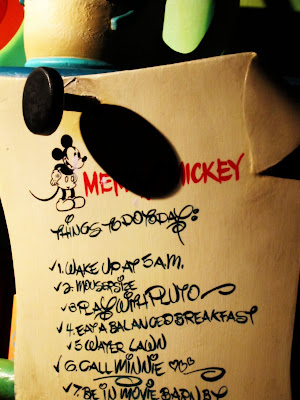 MICKEY
THINGS TO DO TODAY:
✓1. WAKE UP AT 5 A.M.
✓2. MOUSERSIZE
✓3. PLAY WITH PLUTO
✓4. EAT A BALANCED BREAKFAST
✓5 WATER LAWN
✓6. CALL MINNIE
✓7. BE IN MOVIE BARN BY